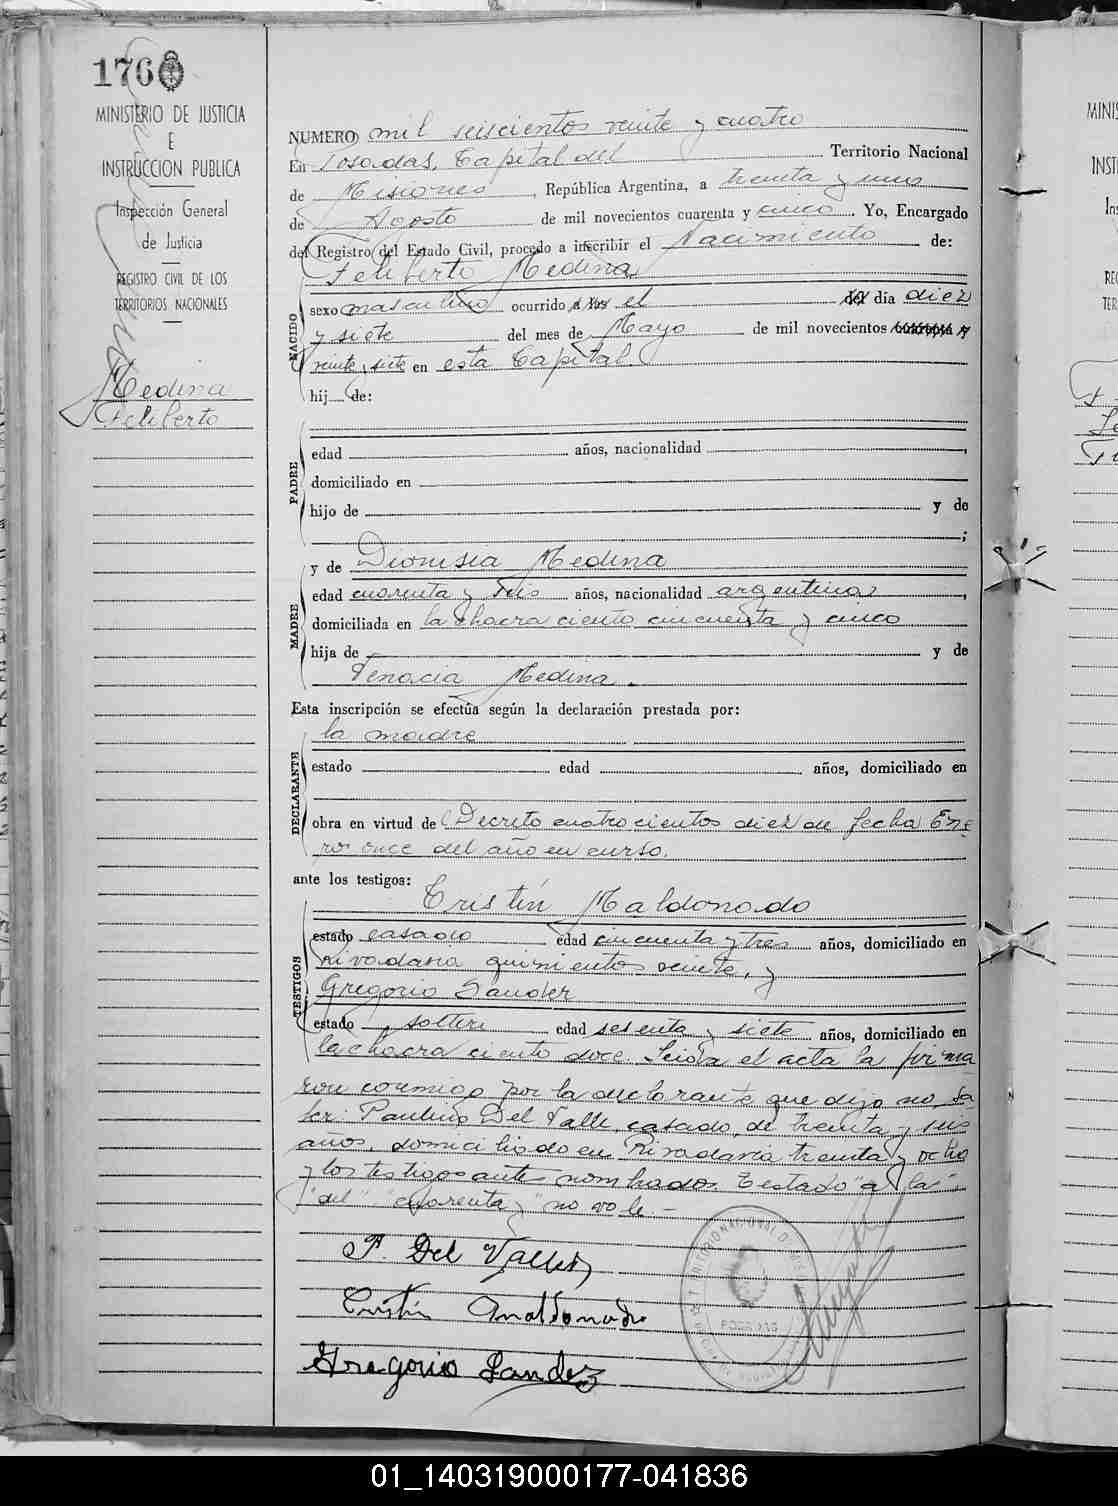 176
MINISTERIO DE JUSTICIA
E
INSTRUCCION PUBLICA
Inspección General
de Justicia
REGISTRO CIVIL DE LOS
TERRITORIOS NACIONALES
Medina
Feliberto
NUMERO mil seiscientos veinte y cuatro
En Posadas, Capital del Territorio Nacional
de Misiones, República Argentina, a treinta y uno
de Agosto de mil novecientos cuarenta y cinco. Yo, Encargado
del Registro del Estado Civil, procedo a inscribir el Nacimiento de:
Feliberto Medina
NACIDO
sexo masculino ocurrido a las el del día diez
y siete del mes de Mayo de mil novecientos cuarenta y
veinte y siete en esta Capital.
hij de:
PADRE
edad años, nacionalidad ,
domiciliado en
hijo de y de
;
MADRE
y de Dionisia Medina
edad cuarenta y seis años, nacionalidad argentina,
domiciliada en la chacra ciento cincuenta y cinco
hija de y de
Venacia Medina.
Esta inscripción se efectúa según la declaración prestada por:
DECLARANTE
la madre
estado edad años, domiciliado en
obra en virtud de Decreto cuatrocientos diez de fecha Ene-
ro once del año en curso.
ante los testigos:
TESTIGOS
Cristín Maldonado
estado casado edad cincuenta y tres años, domiciliado en
Rivadavia quinientos veinte, y
Gregorio Sander
estado soltero edad sesenta y siete años, domiciliado en
la chacra ciento doce. Leida el acta la firma-
ron conmigo por la declarante que dijo no sa-
ber: Paulino Del Valle, casado, de treinta y seis
años, domiciliado en Rivadavia treinta y ocho
y los testigos antes nombrados. Testado "a las"
"del" "cuarenta y" no vale.-
P. Del Valle
Cristín Maldonado
Gregorio Sandez
POSADAS
MINIS
INST
REG
TER
01_140319000177-041836